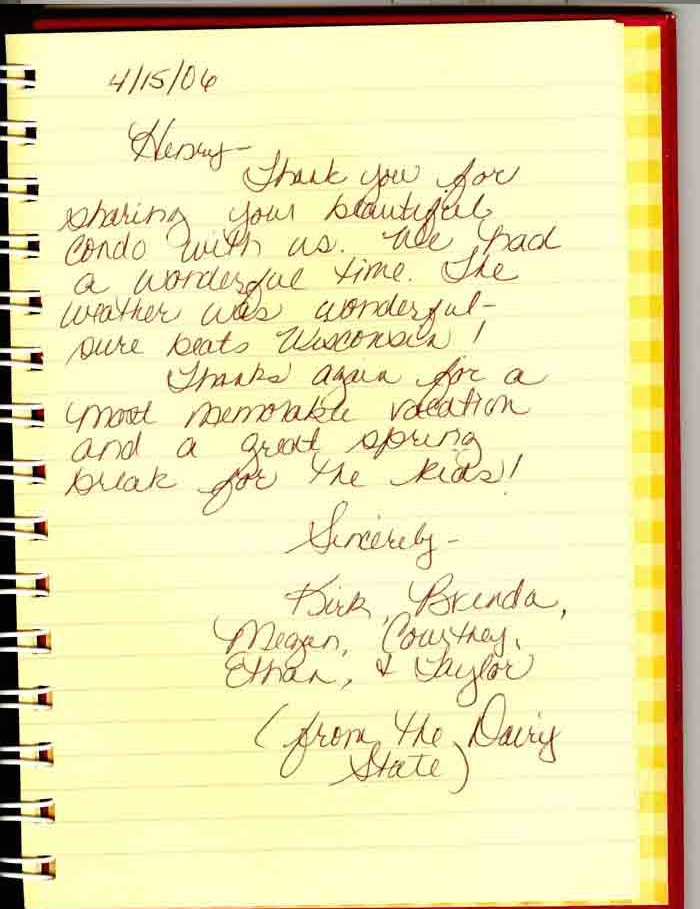 4/15/06
Henry-
Thank you for
sharing your beautiful
condo with us. We had
a wonderful time. The
weather was wonderful-
sure beats Wisconsin!
Thanks again for a
most memorable vacation
and a great spring
break for the kids!
Sincerely-
Kirk, Brenda,
Megan, Courtney,
Ethan, & Taylor
(from the Dairy
State)